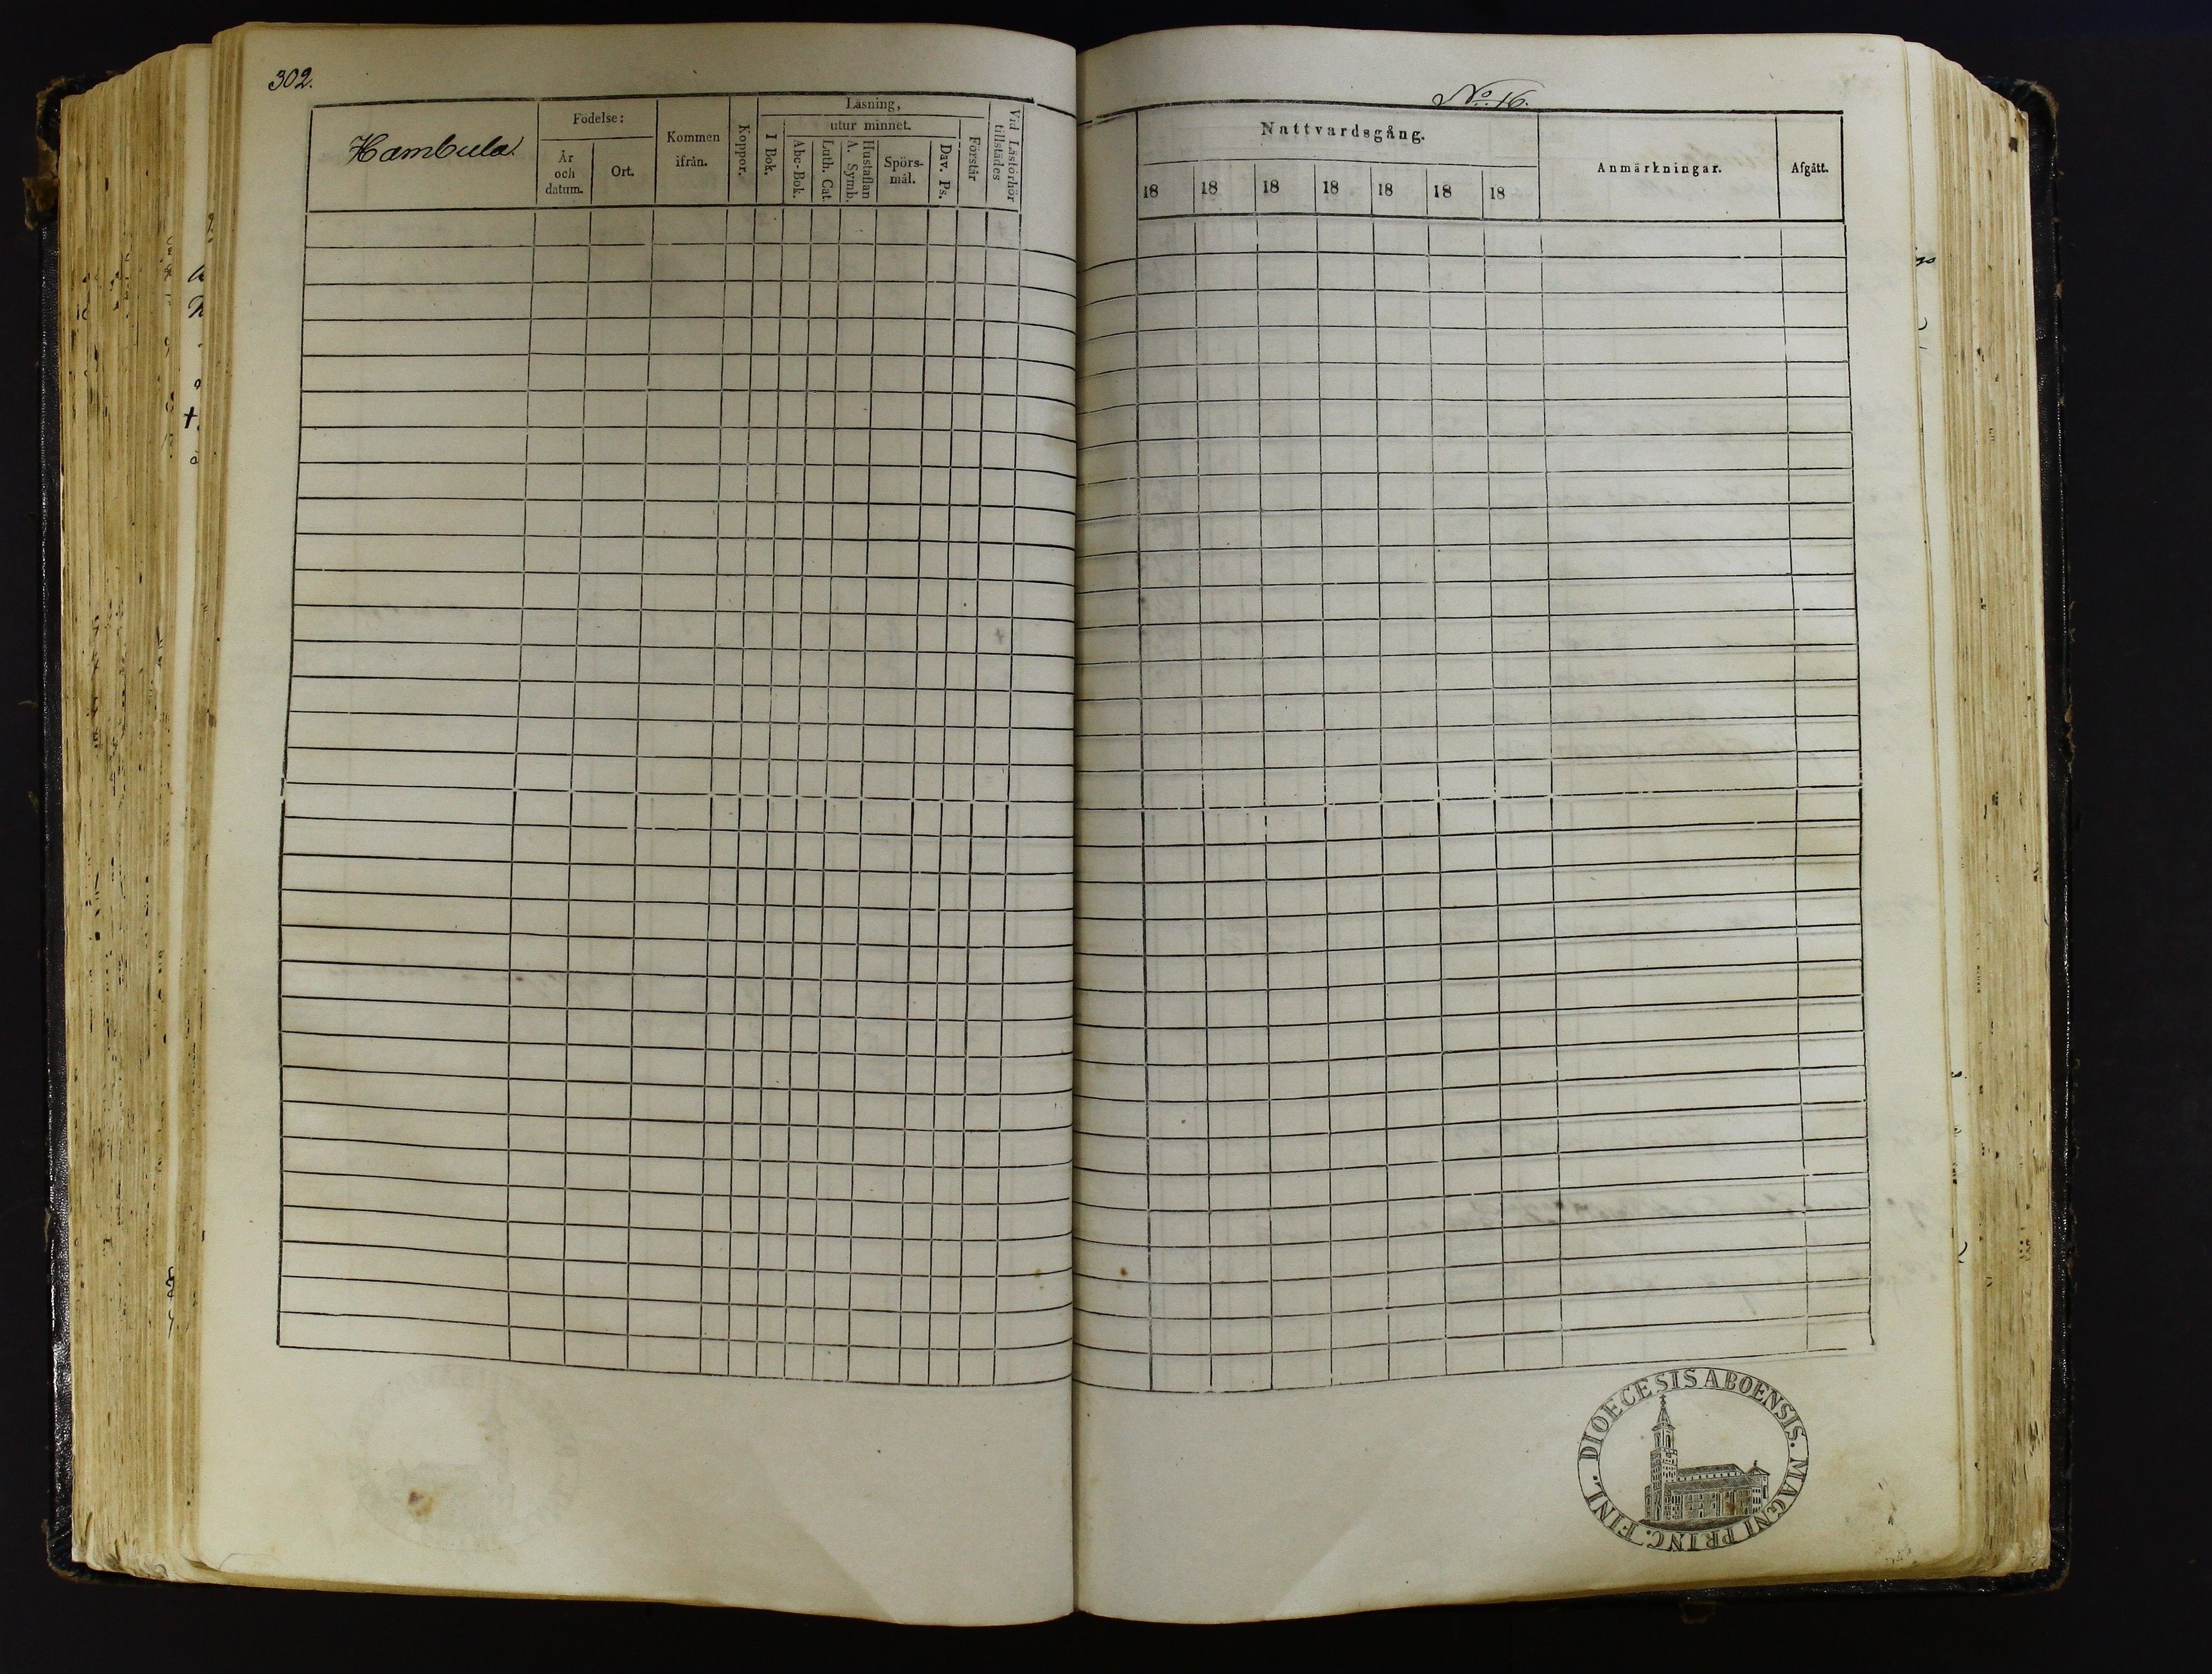 302.
No. 16.
Hambula.
Födelse:
År
och
datum.
Ort.
Kommen
ifrån.
Koppor.
Läsning,
I Bok.
utur minnet.
Abc-Bok.
Luth. Cat.
Hustaflan
A. Symb.
Spörs-
mål.
Dav. Ps.
Förstår
Vid Läsförhör
tillstädes
Nattvardsgång.
18 18 18 18 18 18 18
Anmärkningar.
Afgått.
DIOECESIS ABOENSIS. MAGNI PRINC. FINL.